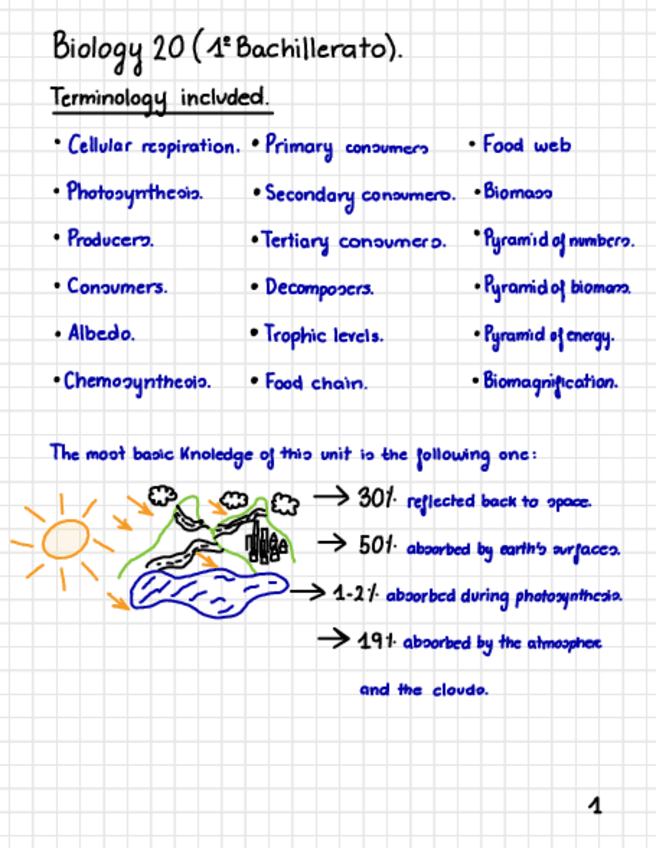 Biology 20 (1º Bachillerato).
Terminology included.
• Cellular respiration. • Primary consumers • Food web
• Photosynthesis. • Secondary consumers. • Biomass
• Producers. • Tertiary consumers. • Pyramid of numbers.
• Consumers. • Decomposers. • Pyramid of biomass.
• Albedo. • Trophic levels. • Pyramid of energy.
• Chemosynthesis. • Food chain. • Biomagnification.
The most basic Knoledge of this unit is the following one:
→ 30% reflected back to space.
→ 50% absorbed by earth's surfaces.
→ 1-2% absorbed during photosynthesis.
→ 19% absorbed by the atmosphere
and the clouds.
1